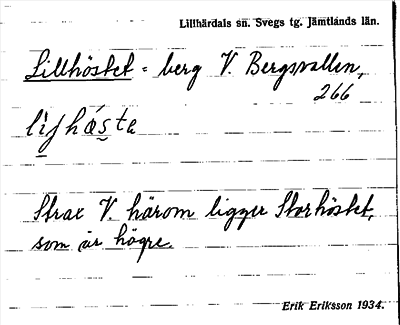 Lillhärdals sn. Svegs tg. Jämtlands län.
Lillhöstet = berg V. Bergsvallen,
266
Strax V. härom ligger Storhöstet,
som är högre.
Erik Eriksson 1934.